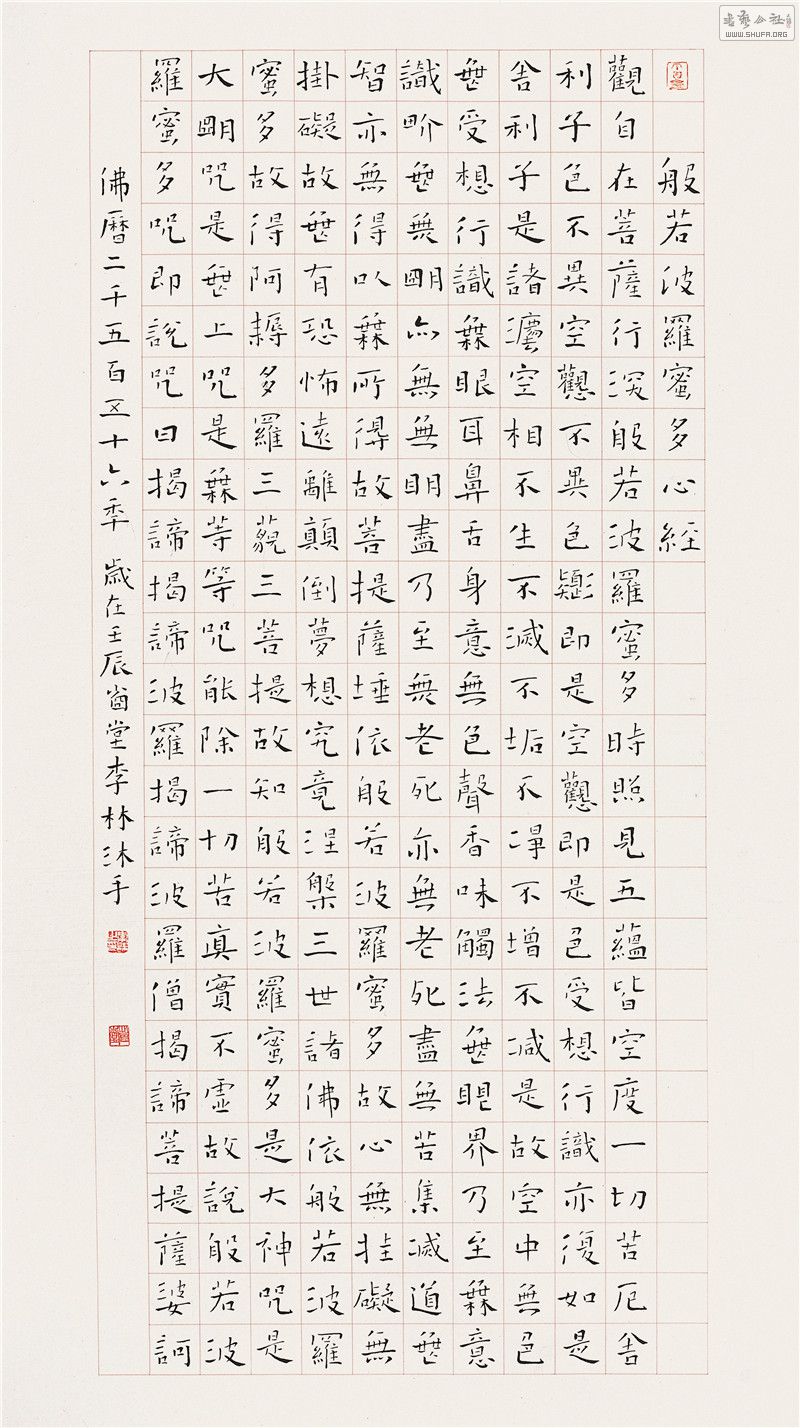 般若波羅蜜多心經
觀自在菩薩行深般若波羅蜜多時照見五蘊皆空度一切苦厄舍
利子色不異空空不異色色即是空空即是色受想行識亦復如是
舍利子是諸灋空相不生不滅不垢不淨不增不減是故空中無色
無受想行識無眼耳鼻舌身意無色聲香味觸法無眼界乃至無意
識界無無明亦無無明盡乃至無老死亦無老死盡無苦集滅道無
智亦無得以無所得故菩提薩埵依般若波羅蜜多故心無挂礙無
掛礙故無有恐怖遠離顛倒夢想究竟涅槃三世諸佛依般若波羅
蜜多故得阿耨多羅三藐三菩提故知般若波羅蜜多是大神咒是
大明咒是無上咒是無等等咒能除一切苦真實不虛故說般若波
羅蜜多咒即說咒曰揭諦揭諦波羅揭諦波羅僧揭諦菩提薩婆訶
佛曆二千五百五十六季 歲在壬辰窗堂李林沐手
書藝公社
WWW.SHUFA.ORG